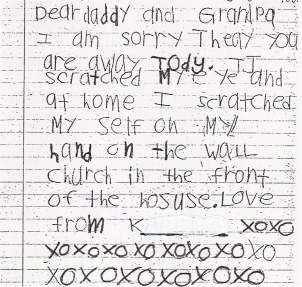 Dear daddy and Grandpa
I am sorry Theay you
are away TODy. TJ
scratched My e ye and
at home I scratched
My Self on My
hand on the wall
Church in the front
of the hosuse. Love
from K______ xoxo
xoxoxoxoxoxoxoxo
xoxoxoxoxoxoxo